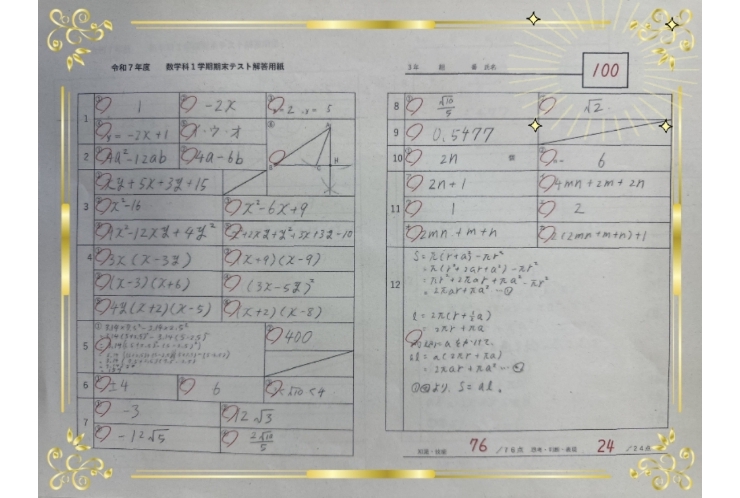 令和7年度 数学科1学期期末テスト解答用紙
3年 組 番 氏名
100
1
1
-2x
y = -2x+1
ウ・オ
A
B
C
H
2
4a²-12ab
4a-6b
3
xy+5x+3y+15
x²-16
x²-6x+9
9x²-12xy+4y²
4
3x(x-3y)
(x+9)(x-9)
(x-3)(x+6)
(3x-5y)²
4y(x+2)(x-5)
(x+2)(x-8)
5
400
6
±4
6
<√10<4
7
-3
12√3
-12√5
8
√10/5
√2
9
0.5477
10
2n 個
6
11
2n+1
4mn+2m+2n
1
2
2mn+m+n
2(2mn+m+n)+1
12
S=π(r+a)²-πr²
=π(r²+2ar+a²)-πr²
=πr²+2πar+πa²-πr²
=2πar+πa² …①
ℓ=2π(r+½a)
=2πr+πa
aℓ=a(2πr+πa)
=2πar+πa² …②
①②より、S=aℓ。
知識・技能 76 /76点 思考・判断・表現 24 /24点